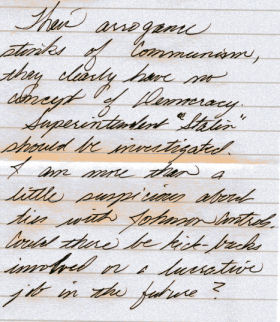 Their arrogance
stinks of Communism,
they clearly have no
concept of Democracy.
Superintendent "Stalin"
should be investigated.
I am more than a
little suspicious about
ties with Johnson Controls.
Could there be kick-backs
involved or a lucrative
job in the future?